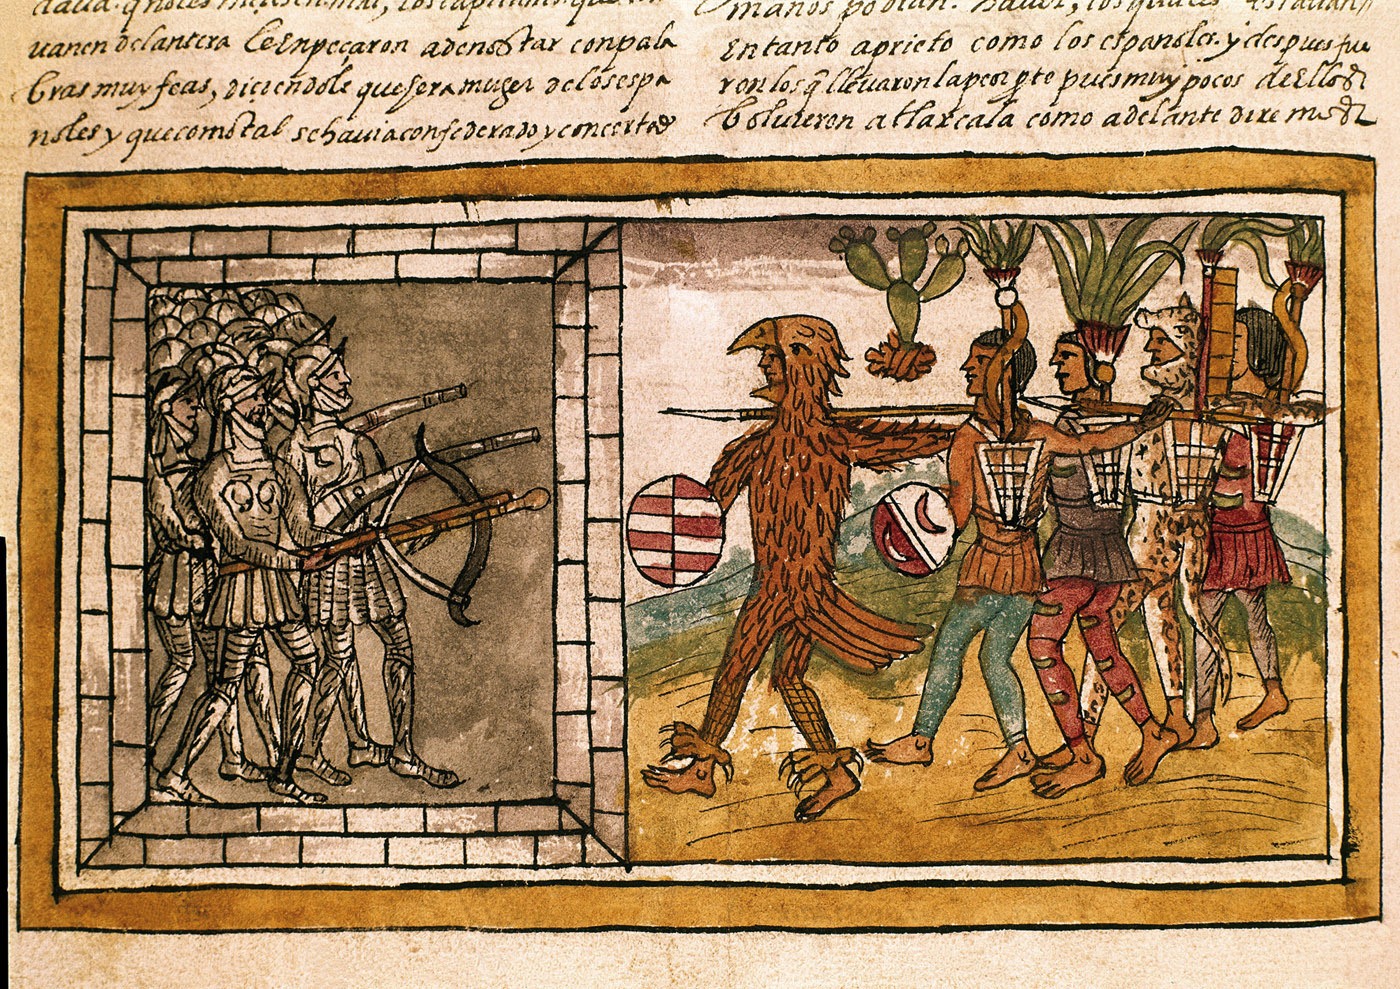 vanen delantera le enpeçaron a denostar con pala
bras muy feas, diciendole que sera muger de los espa
noles y que como tal se havia confederado y concertado
manos podian. haver, los quales estavan
en tanto aprieto como los espanoles. y despues fue
ron los q̃ llevaron la peor pte pues muy pocos de ellos
bolvieron a tlaxcala como adelante diremos